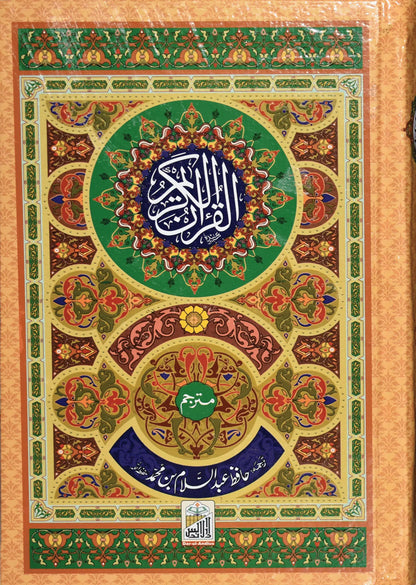 القرآن الكريم
مترجم
ترجمہ
حافظ عبدالسلام بن محمد
دارالاندلس
Dar-ul-Andlus